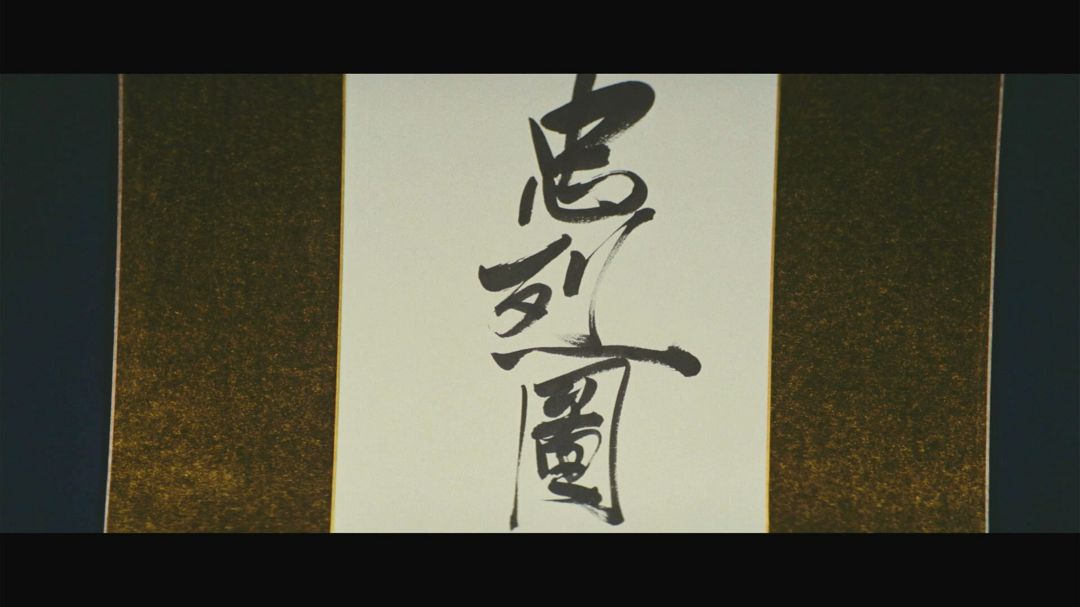 忠烈圖